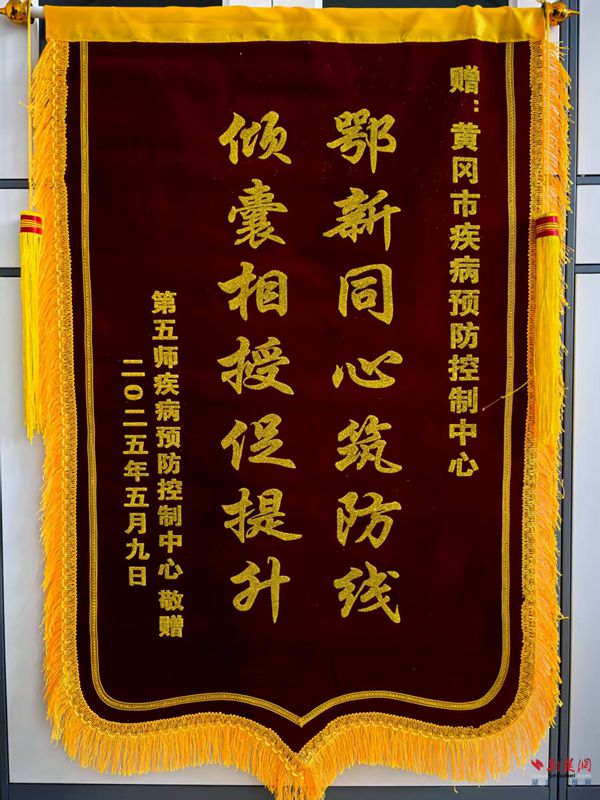 赠：黄冈市疾病预防控制中心
鄂新同心筑防线
倾囊相授促提升
第五师疾病预防控制中心 敬赠
二〇二五年五月九日
荆楚网